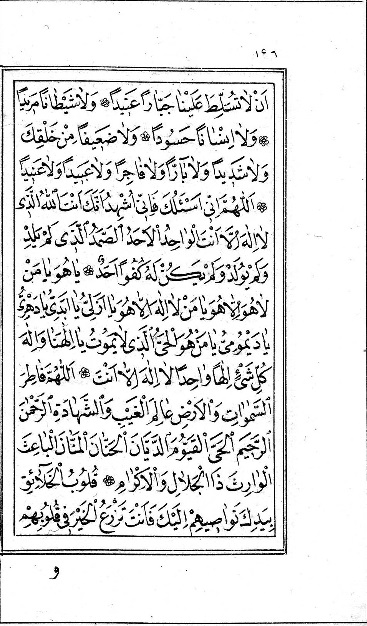 ١٩٦
اَنْ لَا تُسَلِّطَ عَلَيْنَا جَبَّارًا عَنِيدًا ۞ وَلَا شَيْطَانًا مَرِيدًا
۞ وَلَا اِنْسَانًا حَسُودًا ۞ وَلَا ضَعِيفًا مِنْ خَلْقِكَ
وَلَا شَدِيدًا وَلَا بَارًّا وَلَا فَاجِرًا وَلَا عَبِيدًا وَلَا عَنِيدًا
۞ اَللّٰهُمَّ اِنِّى اَسْئَلُكَ فَاِنِّى اَشْهَدُ اَنَّكَ اَنْتَ اللهُ الَّذِى
لَا اِلٰهَ اِلَّا اَنْتَ الْوَاحِدُ الْاَحَدُ الصَّمَدُ الَّذِى لَمْ يَلِدْ
وَلَمْ يُولَدْ وَلَمْ يَكُنْ لَهُ كُفُوًا اَحَدٌ ۞ يَا هُوَ يَا مَنْ
لَا هُوَ اِلَّا هُوَ يَا مَنْ لَا اِلٰهَ اِلَّا هُوَ يَا اَزَلِىُّ يَا اَبَدِىُّ يَا دَهْرِىُّ
يَا دَيْمُومِىُّ يَا مَنْ هُوَ الْحَىُّ الَّذِى لَا يَمُوتُ يَا اِلٰهَنَا وَاِلٰهَ
كُلِّ شَىْءٍ اِلٰهًا وَاحِدًا لَا اِلٰهَ اِلَّا اَنْتَ ۞ اَللّٰهُمَّ فَاطِرَ
السَّمٰوَاتِ وَالْاَرْضِ عَالِمَ الْغَيْبِ وَالشَّهَادَةِ الرَّحْمٰنَ
الرَّحِيمَ الْحَىَّ الْقَيُّومَ الدَّيَّانَ الْحَنَّانَ الْمَنَّانَ الْبَاعِثَ
الْوَارِثَ ذَا الْجَلَالِ وَالْاِكْرَامِ ۞ قُلُوبُ الْخَلَائِقِ
بِيَدِكَ نَوَاصِيهِمْ اِلَيْكَ فَاَنْتَ تَزْرَعُ الْخَيْرَ فِى قُلُوبِهِمْ
و